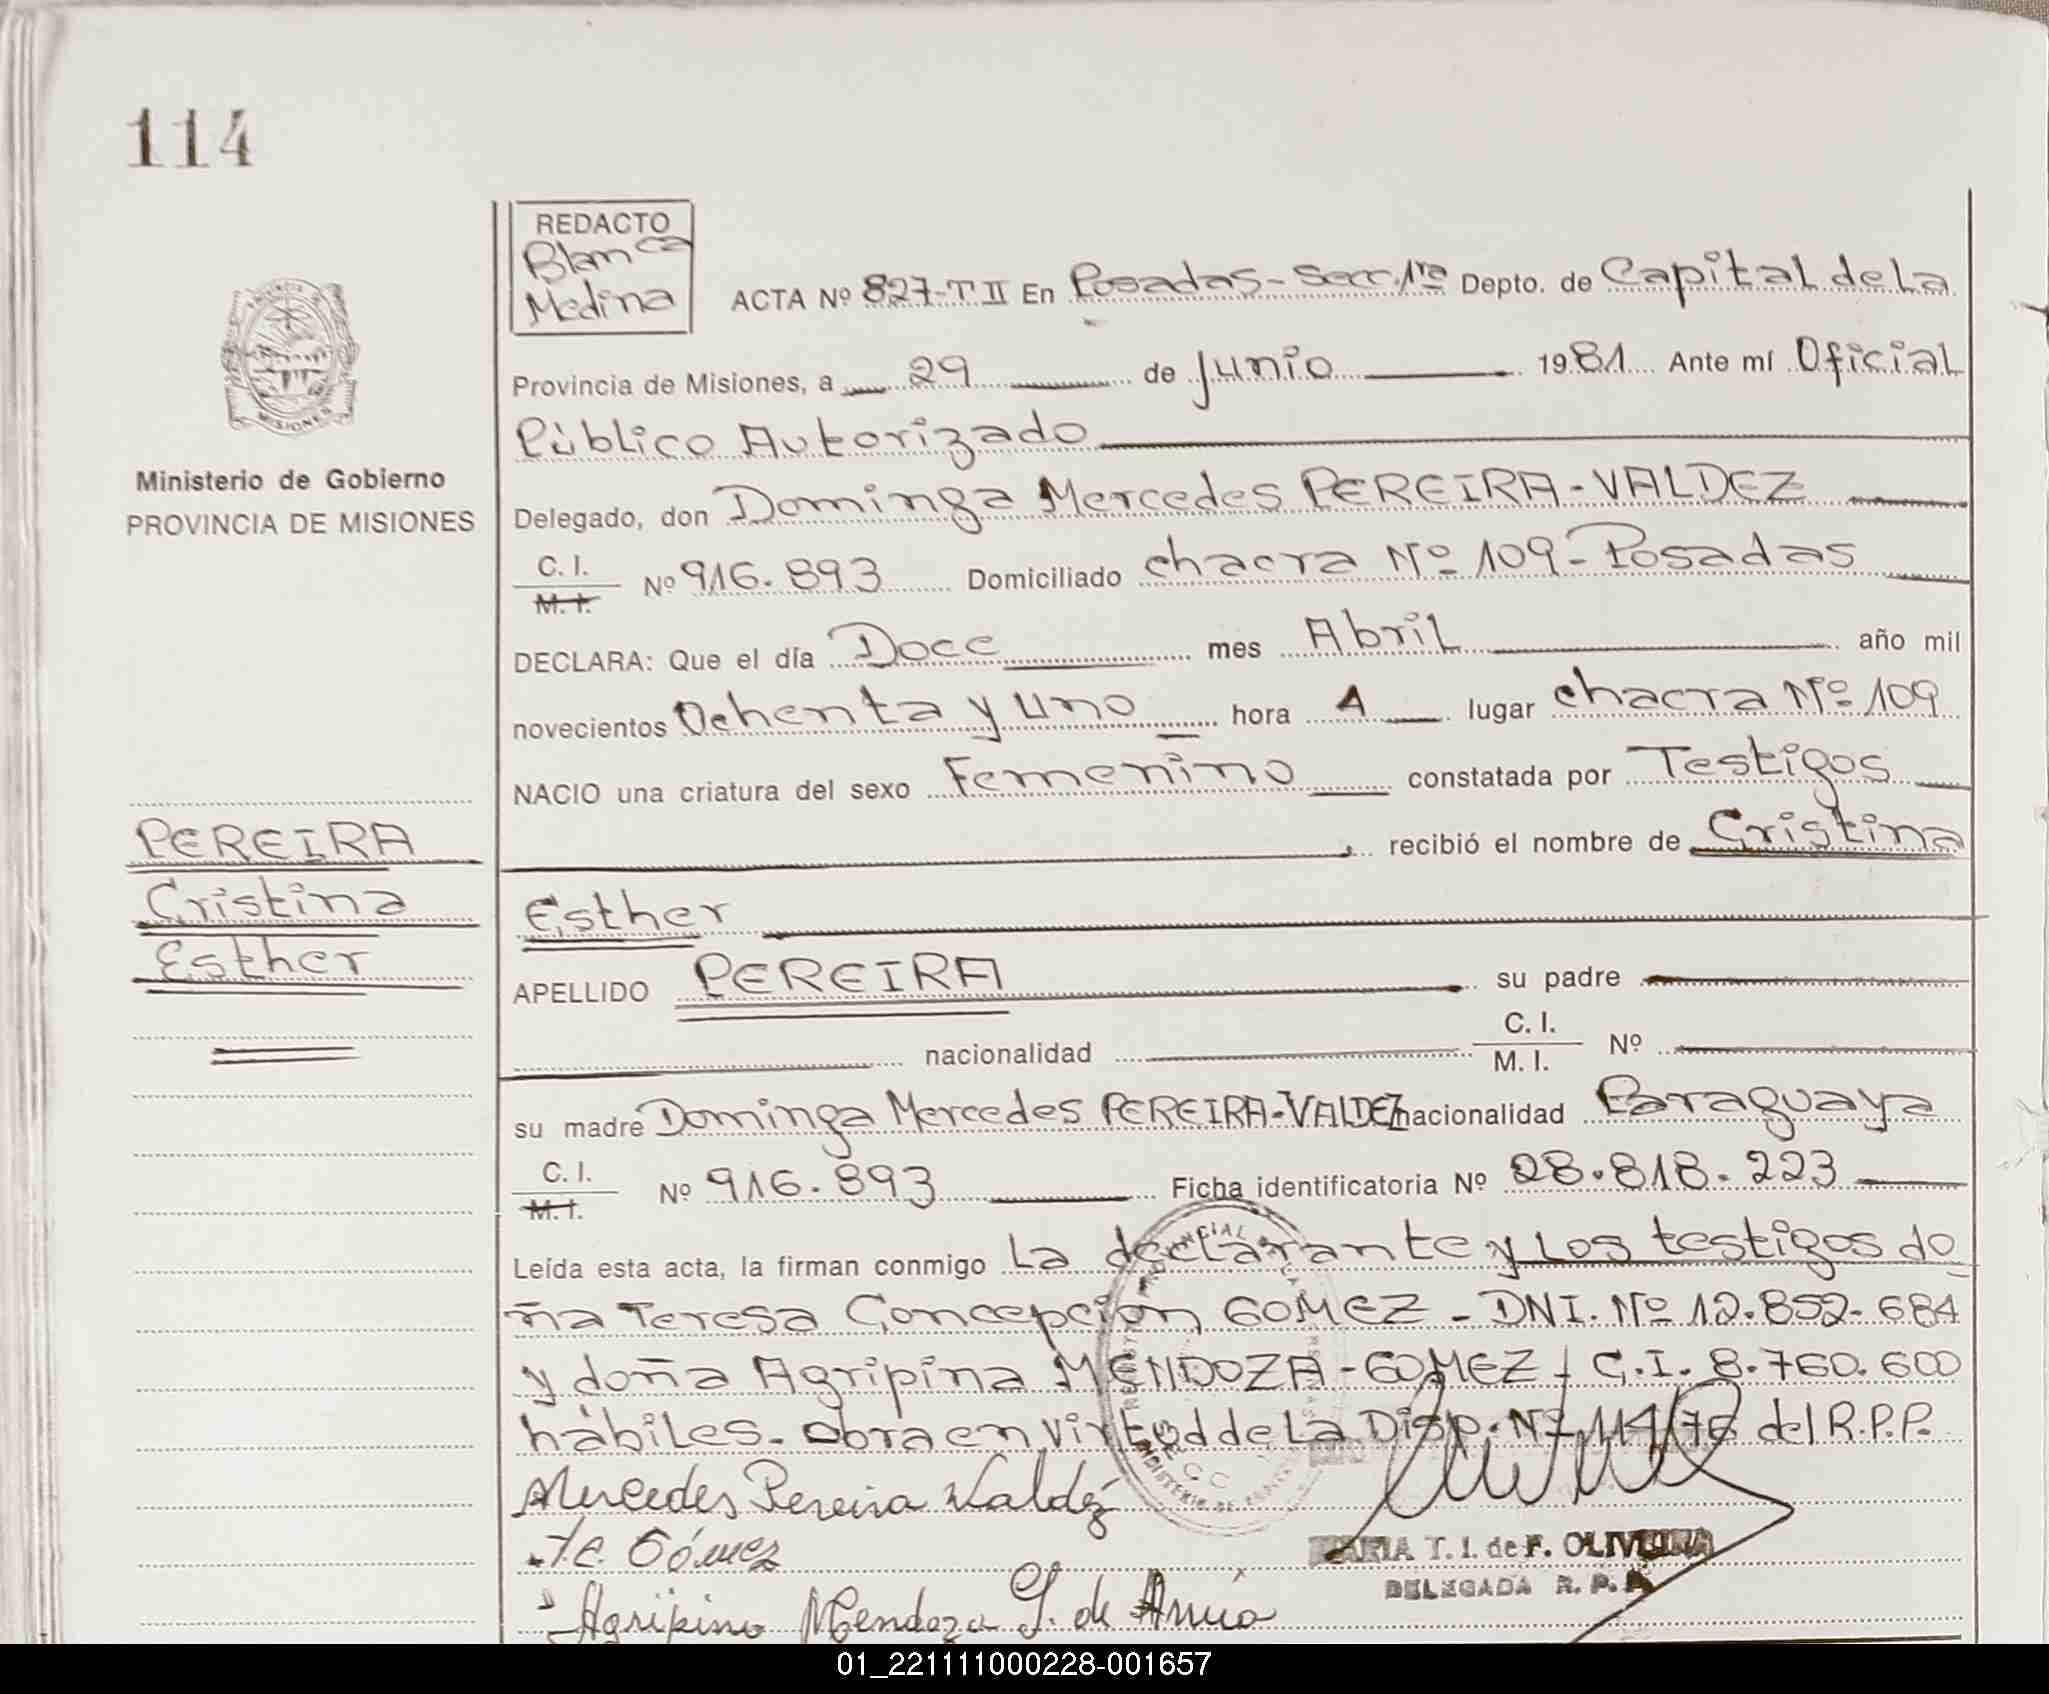 114
REDACTO
Blanca
Medina
ACTA Nº 827-T II En Posadas-Secc. 1ra Depto. de Capital de la
Provincia de Misiones, a 29 de Junio 1981 Ante mí Oficial
Público Autorizado
Ministerio de Gobierno
PROVINCIA DE MISIONES
Delegado, don Dominga Mercedes PEREIRA-VALDEZ
C. I.
M. I. Nº 916.893 Domiciliado chacra Nº 109-Posadas
DECLARA: Que el día Doce mes Abril año mil
novecientos Ochenta y uno hora 4 lugar chacra Nº 109
NACIO una criatura del sexo Femenino constatada por Testigos
recibió el nombre de Cristina
PEREIRA
Cristina
Esther
Esther
APELLIDO PEREIRA su padre
nacionalidad C. I.
M. I. Nº
su madre Dominga Mercedes PEREIRA-VALDEZ nacionalidad Paraguaya
C. I.
M. I. Nº 916.893 Ficha identificatoria Nº 28.818.223
Leída esta acta, la firman conmigo la declarante y los testigos do
ña Teresa Concepcion GOMEZ - DNI. Nº 12.852.684
y doña Agripina MENDOZA-GOMEZ - C.I. 8.760.600
hábiles. Obra en virtud de la Disp. Nº 114/76 del R.P.P.
Mercedes Pereira Valdéz
T.C. Gómez
Agripina Mendoza G. de
MARIA T. I. de F. OLIVEIRA
DELEGADA R. P. P.
MISIONES
01_221111000228-001657